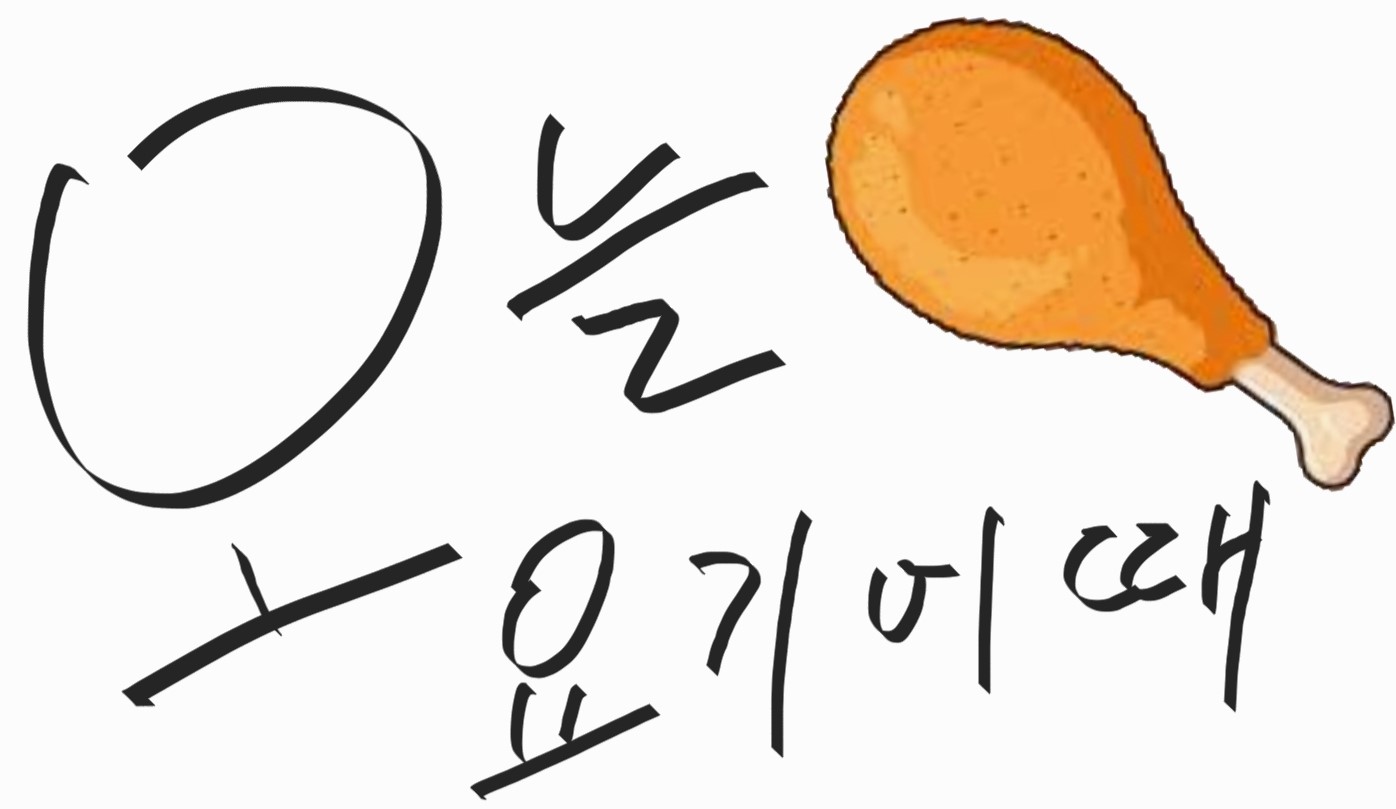 오늘
요기어때